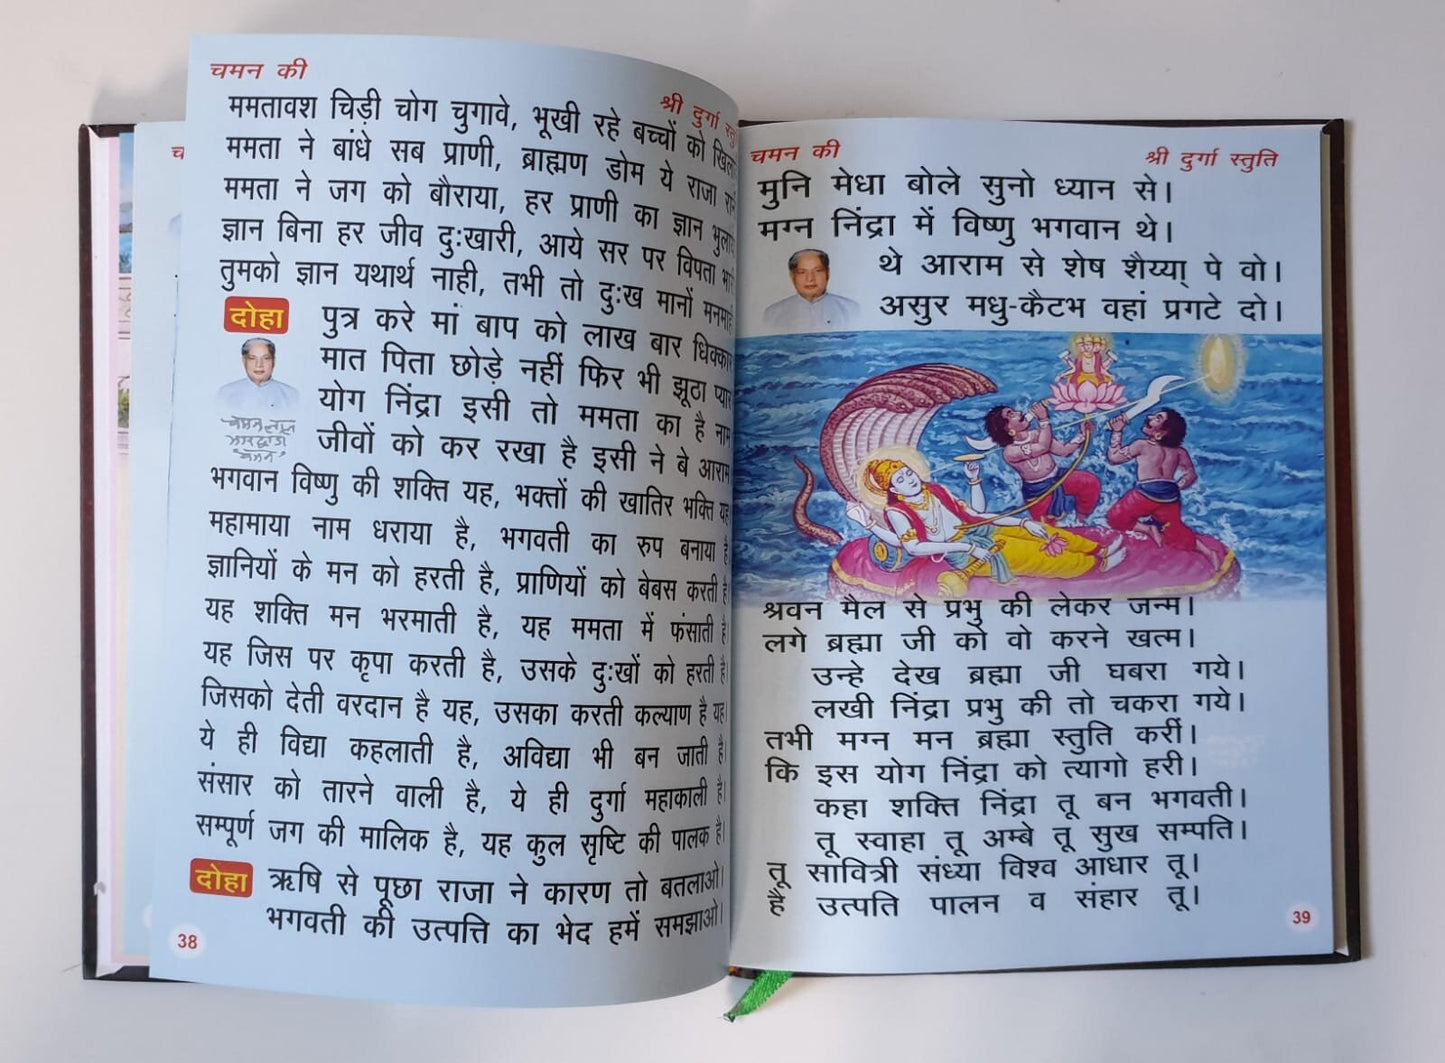 चमन की
श्री दुर्गा
ममतावश चिड़ी चोग चुगावे, भूखी रहे बच्चों को
ममता ने बांधे सब प्राणी, ब्राह्मण डोम ये राजा
ममता ने जग को बौराया, हर प्राणी का ज्ञान
ज्ञान बिना हर जीव दुःखारी, आये सर पर विपता
तुमको ज्ञान यथार्थ नाही, तभी तो दुःख मानों
दोहा
पुत्र करे मां बाप को लाख बार धिक्कार
मात पिता छोड़े नहीं फिर भी झूठा प्यार
योग निंद्रा इसी तो ममता का है नाम
जीवों को कर रखा है इसी ने बे आराम
भगवान विष्णु की शक्ति यह, भक्तों की खातिर भक्ति यह
महामाया नाम धराया है, भगवती का रुप बनाया है
ज्ञानियों के मन को हरती है, प्राणियों को बेबस करती है
यह शक्ति मन भरमाती है, यह ममता में फंसाती है।
यह जिस पर कृपा करती है, उसके दुःखों को हरती है।
जिसको देती वरदान है यह, उसका करती कल्याण है यह।
ये ही विद्या कहलाती है, अविद्या भी बन जाती है।
संसार को तारने वाली है, ये ही दुर्गा महाकाली है।
सम्पूर्ण जग की मालिक है, यह कुल सृष्टि की पालक है।
दोहा
ऋषि से पूछा राजा ने कारण तो बतलाओ।
भगवती की उत्पत्ति का भेद हमें समझाओ।
38
चमन की
श्री दुर्गा स्तुति
मुनि मेधा बोले सुनो ध्यान से।
मग्न निंद्रा में विष्णु भगवान थे।
थे आराम से शेष शैय्या् पे वो।
असुर मधु-कैटभ वहां प्रगटे दो।
श्रवन मैल से प्रभु की लेकर जन्म।
लगे ब्रह्मा जी को वो करने खत्म।
उन्हे देख ब्रह्मा जी घबरा गये।
लखी निंद्रा प्रभु की तो चकरा गये।
तभी मग्न मन ब्रह्मा स्तुति करीं।
कि इस योग निंद्रा को त्यागो हरी।
कहा शक्ति निंद्रा तू बन भगवती।
तू स्वाहा तू अम्बे तू सुख सम्पति।
तू सावित्री संध्या विश्व आधार तू।
है उत्पति पालन व संहार तू।
39